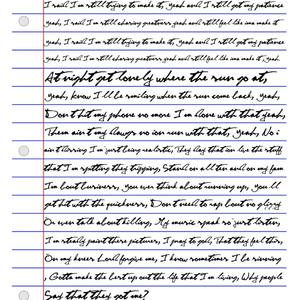 I said I'm still trying to make it, yeah and I still got my patience
yeah, I said I'm still chasing greatness yeah and still feel like ima make it
yeah, I said I'm still trying to make it, yeah and I still got my patience
yeah, I said I'm still chasing greatness yeah and still feel like ima make it
At night get lonely where the sun go at,
yeah, know I'll be smiling when the sun come back, yeah,
Don't hit my phone no more I'm done with that yeah,
Them ain't my dawgs no ion run with that, yeah, No i
ain't dissing I'm just being realistic, They say that ion like the stuff
that I'm spitting they tripping, Stand on all ten and on my fam
I'm bout business, you ever think about running up, you'll
get hit with the quickness, Don't need to rap bout no
Or even talk about killing, My music speak so just listen,
I'm steady paint these pictures, I pray to god, That they feel this,
On my knees Lord forgive me, I know sometimes I be sinning
, Gotta make the best up out the life that I'm living, Why people
Say that they got me?